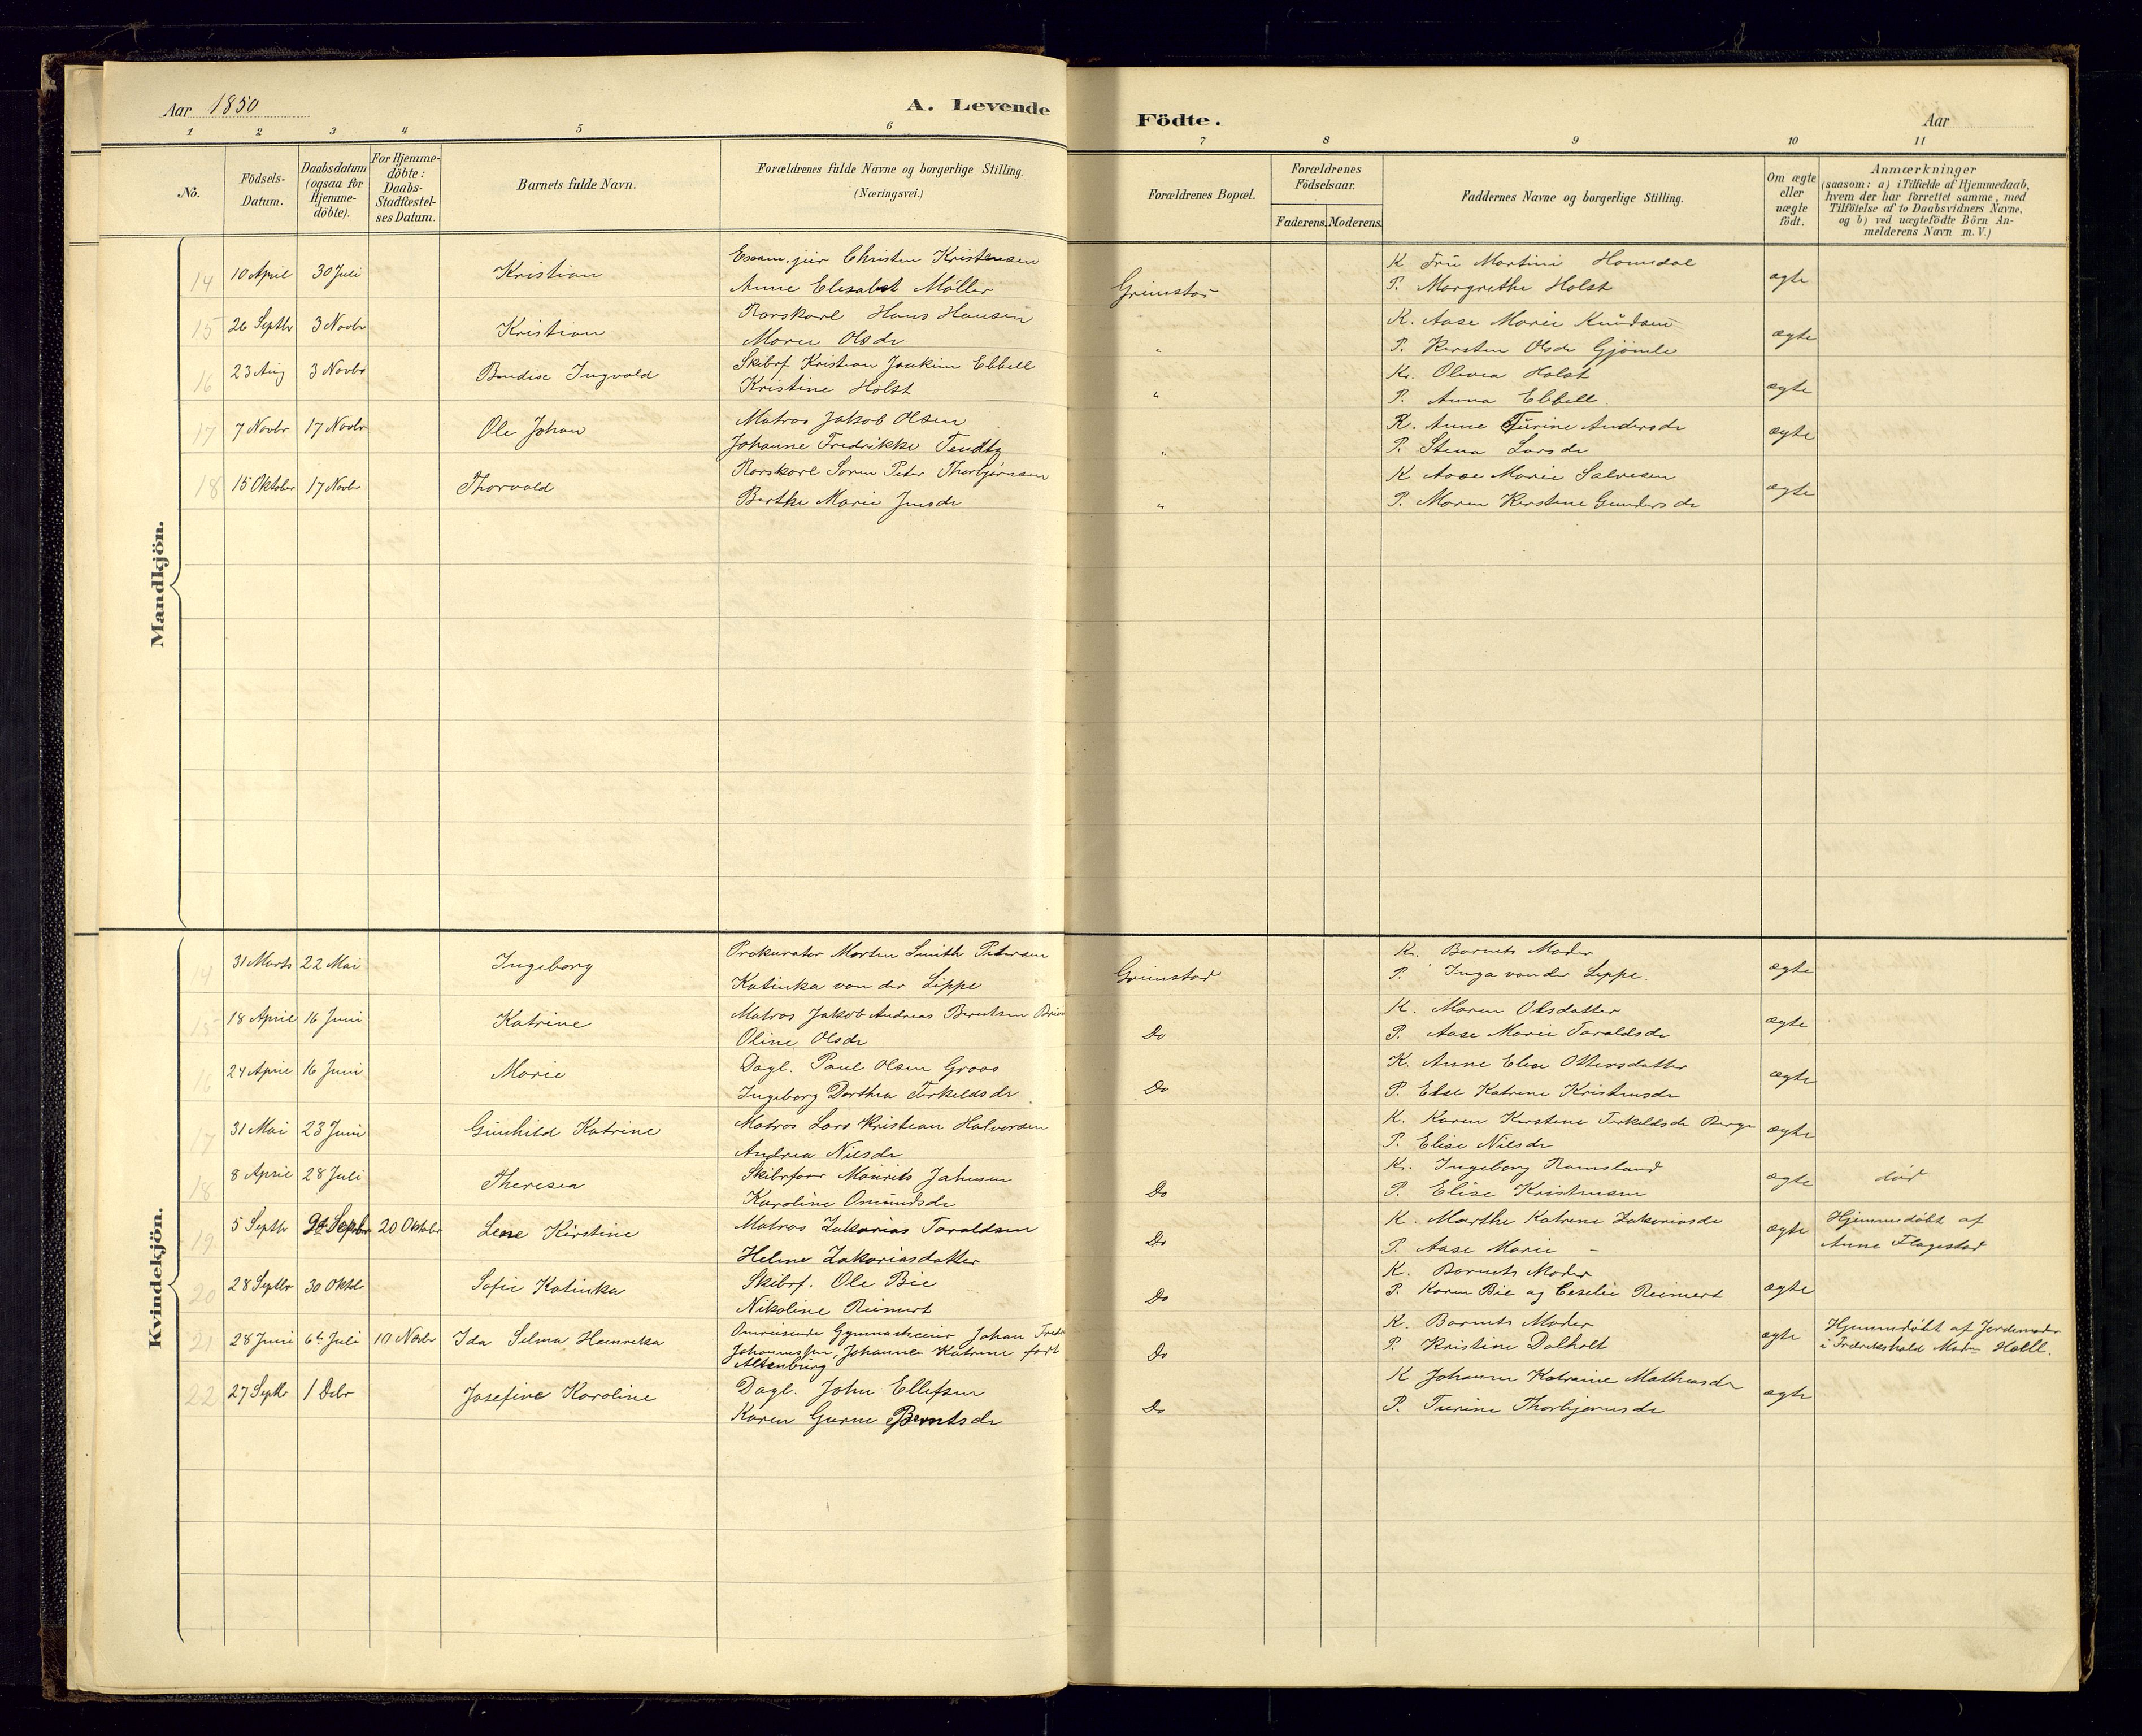 Aar 1850
A. Levende Födte.
Aar
1 2 3 4 5 6 7 8 9 10 11
No.
Födsels-Datum.
Daabsdatum (ogsaa for Hjemme-döbte).
For Hjemme-döbte: Daabs-Stadfæstel-ses Datum.
Barnets fulde Navn.
Forældrenes fulde Navne og borgerlige Stilling. (Næringsvei.)
Forældrenes Bopæl.
Forældrenes Födselsaar.
Faderens. Moderens.
Faddernes Navne og borgerlige Stilling.
Om ægte eller uægte födt.
Anmærkninger
(saasom: a) i Tilfælde af Hjemmedaab,
hvem der har forrettet samme, med
Tilföielse af to Daabsvidners Navne,
og b) ved uægtefödte Börn An-
melderens Navn m. V.)
Mandkjön.
14 10 April 30 Juli Kristian Exam. jur Christen Kristensen K Fru Martini Homdal ægte
Anne Elisabet Möller Grimstad P. Margrethe Holst
15 26 Septbr 3 Novbr Kristian Rorskarl Hans Hansen K. Aase Marie Knudsen ægte
Marie Olsdr " P. Kersten Olsdr Gjömle
16 23 Aug 3 Novbr Bendix Ingvald Skibrf Kristian Joakim Ebbell K. Olivia Holst ægte
Kristine Holst " P. Anna Ebbell.
17 7 Novbr 17 Novbr Ole Johan Matros Jakob Olsen K. Anne Turine Andersdr ægte
Johanne Fredrikke Tendtz " P. Stina Larsdr
18 15 Oktober 17 Novbr Thorvald Rorskarl Sören Peter Thorbjörnsen K Aase Marie Salvesen ægte
Berthe Marie Jensdr " P. Maren Kerstine Gundersdr
Kvindekjön.
14 31 Marts 22 Mai Ingeborg Prokurator Morten Smith Petersen K. Barnets Moder ægte
Katinka von der Lippe Grimstad P. Inga von der Lippe.
15 18 April 16 Juni Katrine Matros Jakob Andreas Berntsen K. Maren Olsdatter ægte
Oline Olsdr Do P. Aase Marie Taraldsdr
16 24 April 16 Juni Marie Dagl. Paul Olsen Groos K. Anne Elise Ottersdatter ægte
Ingeborg Dorthea Terkeldsdr. Do P. Else Katrine Kristensdr
17 31 Mai 23 Juni Gunhild Katrine Matros Lars Kristian Halvorsen K. Karen Kerstine Terkeldsdr Berge ægte
Andrea Nielsdr P. Elise Nielsdr
18 8 April 28 Juli Theresea Skibsförer Mourits Jahnsen K. Ingeborg Ramsland ægte död
Karoline Omundsdr Do P. Elise Kristensen
19. 5 Septbr 9de Septbr 20 Oktobr Lene Kirstine Matros Zakarias Taraldsen K. Marthe Katrine Zakariasdr ægte Hjemmedöbt af
Helene Zakariasdatter Do P. Aase Marie — Anne Flagestad
20 28 Septbr 30 Oktbr Sofie Katinka Skibrf. Ole Bie K. Barnets Moder ægte
Nikoline Reimert Do P. Karen Bie og Ceselie Reimert
21 28 Juni 6te Juli 10 Novbr Ida Selma Henrikka Omreisende Gymnasticeur Johan K. Barnets Moder ægte Hjemmedöbt af Jordemoder
Johannessen, Johannea Katrine födt Do P. Kristine Dalholt i Fredrikshald Madm Holll.
Altenburg
22 27 Septbr 1 Debr Josefine Karoline Dagl. John Ellefsen K Johanne Katrine Mathiasdr ægte
Karen Gurine Berntsdr Do P. Turine Thorbjørnsdr